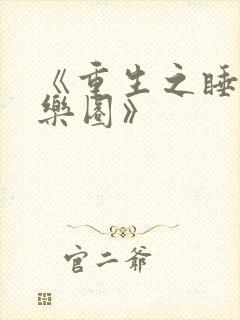 《重生之睡
樂園》
官二爷